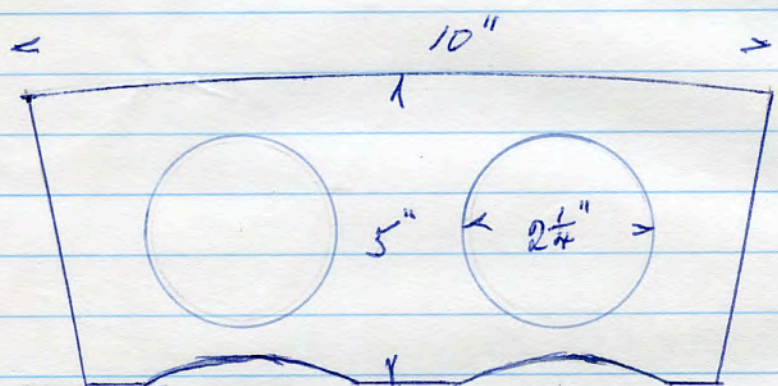 10"
5"
2 1/4"